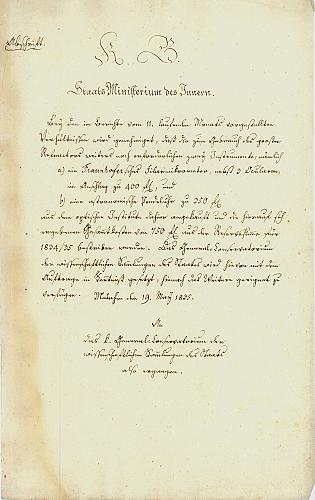 Abschrift.
K. B.
Staats Ministerium des Innern.
Bey den im Berichte vom 11. laufenden Monats vorgestellten
Verhältnissen wird genehmiget, daß die zum Gebrauch des großen
Refractors weiters noch erforderlichen zwey Instrumente, nämlich
a) ein Fraunhofer'sches Filarmikrometer, nebst 3 Ocularen,
im Anschlag zu 400 fl, und
b) eine astronomische Pendeluhr zu 350 fl
aus dem optischen Institute dahier angekauft und die hienach sich
ergebenen Gesamtkosten von 750 fl aus der Reservekasse für
1834/35 bestritten werden. Das General-Conservatorium
der wissenschaftlichen Sammlungen des Staates wird hievon mit dem
Auftrage in Kenntniß gesetzt, hienach das Weitere geeignet zu
verfügen. München den 19. May 1835.
An
das k. General-Conservatorium der
wissenschaftlichen Sammlungen des Staats
also ergangen.